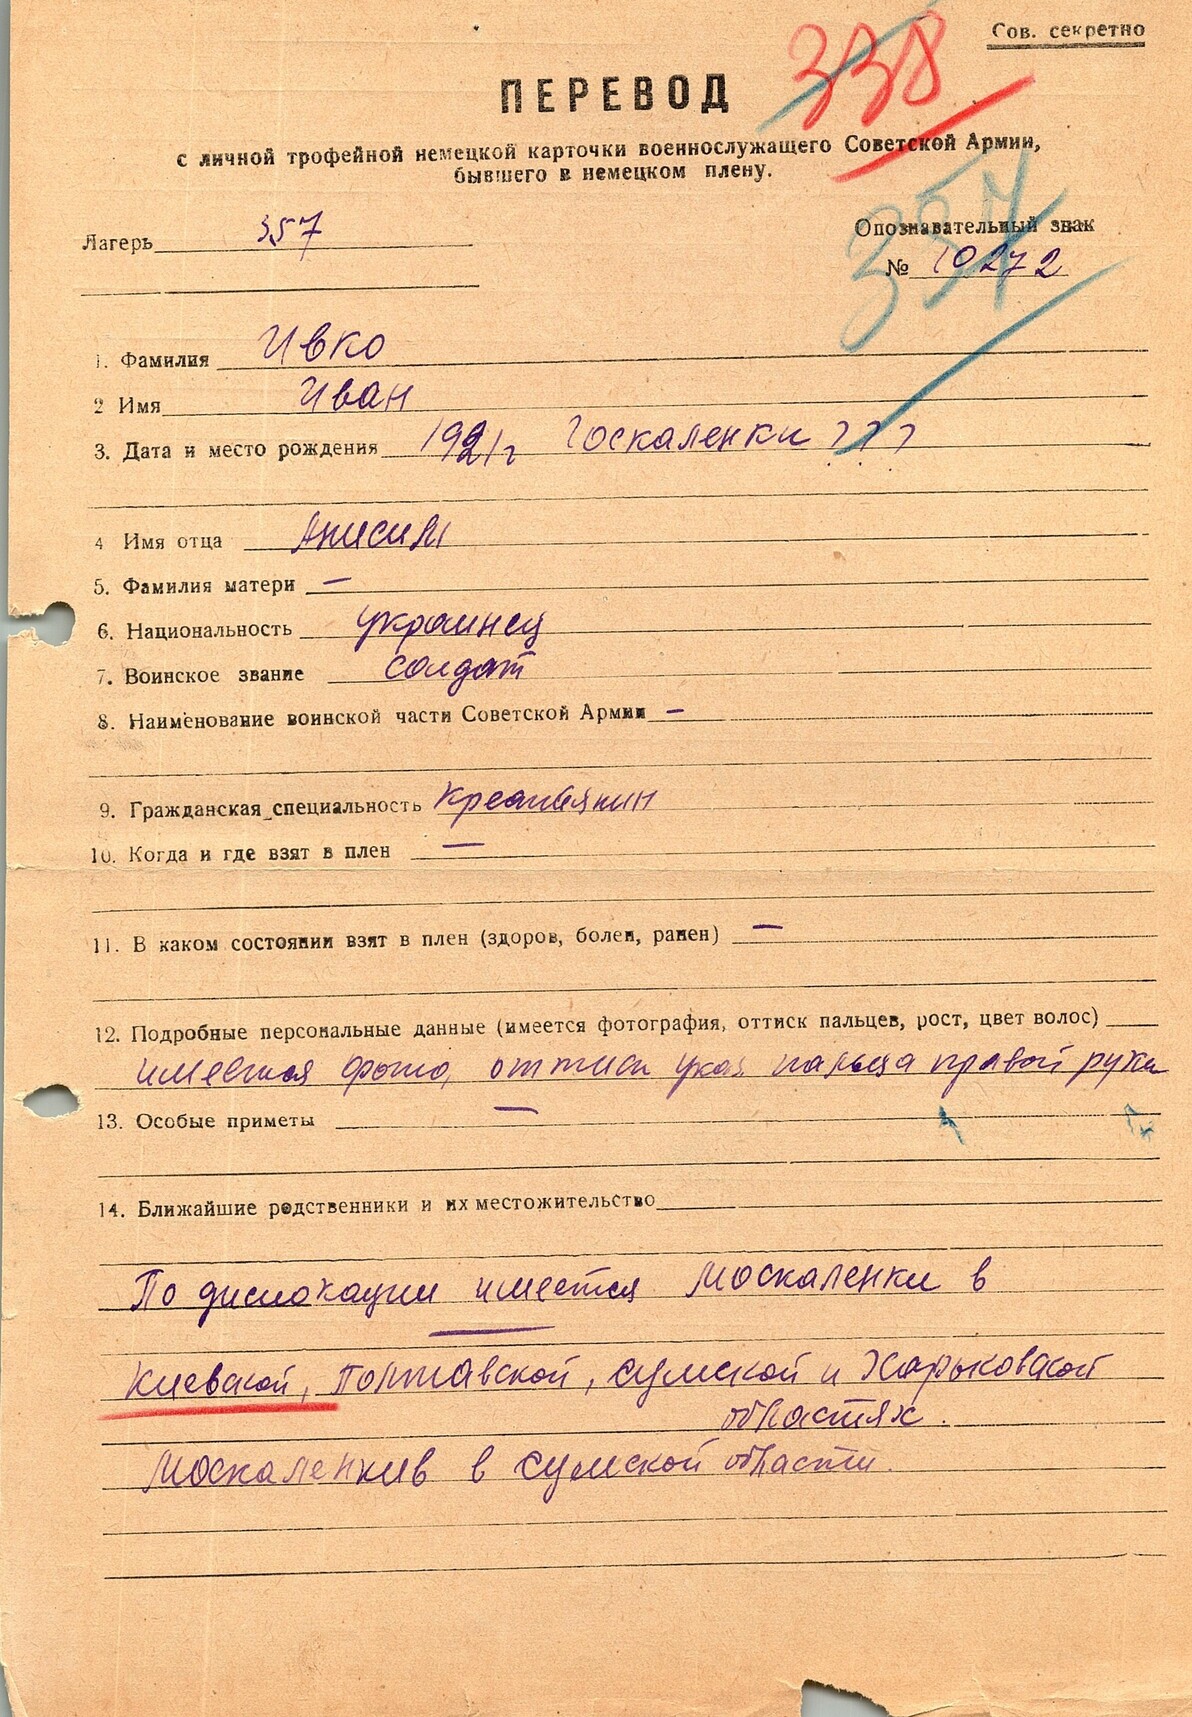 Сов. секретно
338
ПЕРЕВОД
с личной трофейной немецкой карточки военнослужащего Советской Армии,
бывшего в немецком плену.
357
Лагерь 357
Опознавательный знак
№ 10272
1. Фамилия Ивко
2 Имя Иван
3. Дата и место рождения 1921г Госкаленки ???
4 Имя отца Анисим
5. Фамилия матери —
6. Национальность украинец
7. Воинское звание солдат
8. Наименование воинской части Советской Армии —
9. Гражданская специальность крестьянин
10. Когда и где взят в плен —
11. В каком состоянии взят в плен (здоров, болен, ранен) —
12. Подробные персональные данные (имеется фотография, оттиск пальцев, рост, цвет волос)
имеется фото, оттиск указ. пальца правой руки
13. Особые приметы —
14. Ближайшие родственники и их местожительство
По дислокации имеется Москаленки в
Киевской, Полтавской, Сумской и Харьковской
областях.
Москаленков в Сумской области.